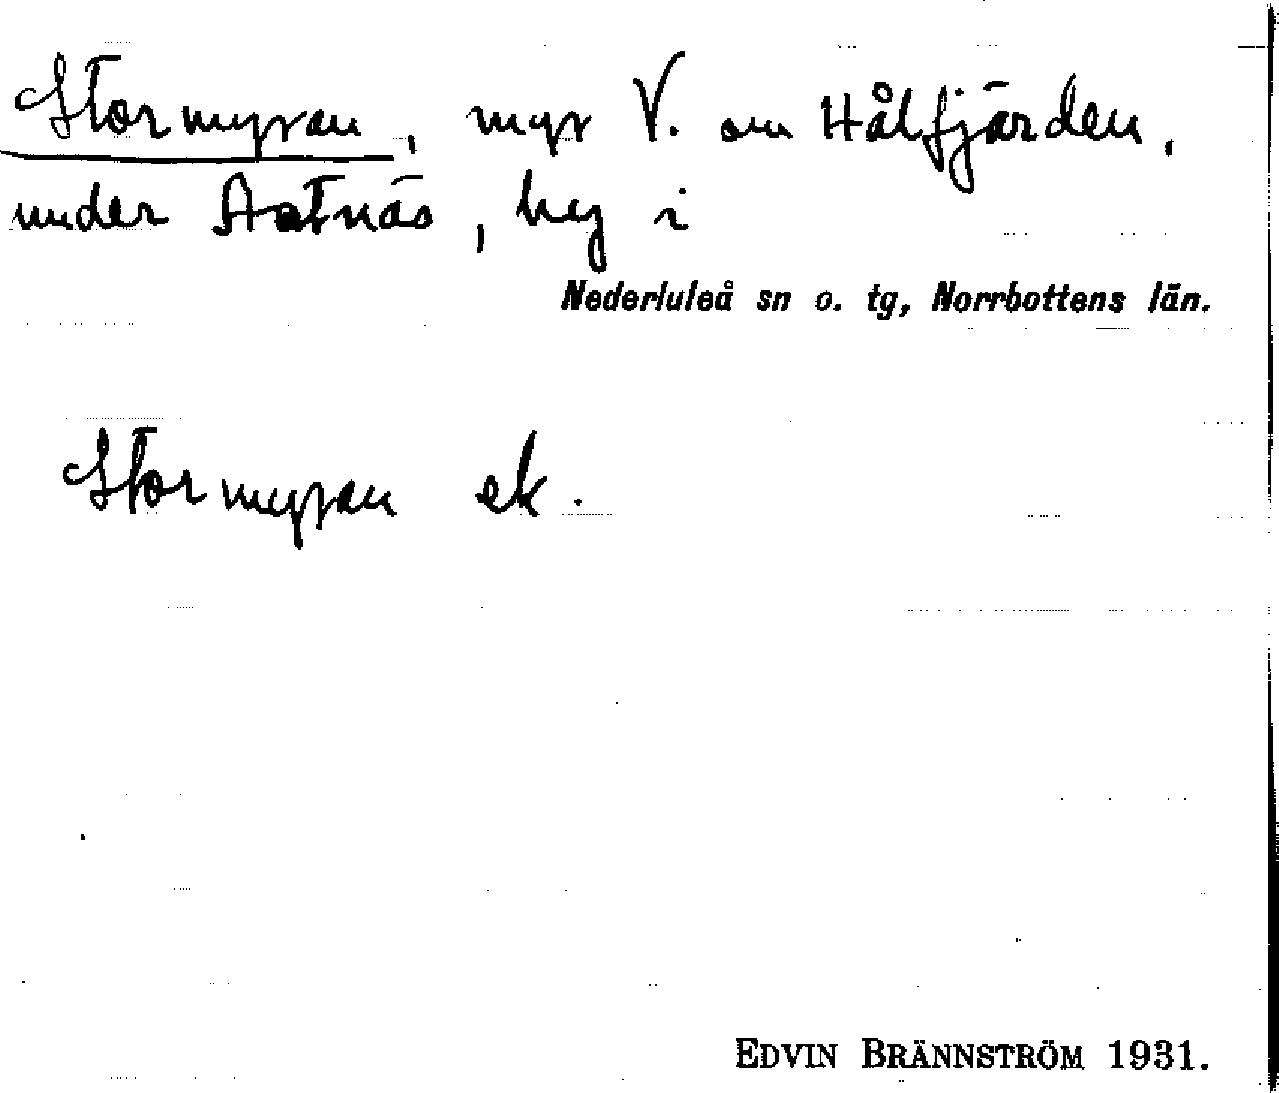 Stormyran, myr V. om Hålfjärden,
under Astnäs, by i
Nederluleå sn o. tg, Norrbottens län.
Stormyran ek.
EDVIN BRÄNNSTRÖM 1931.